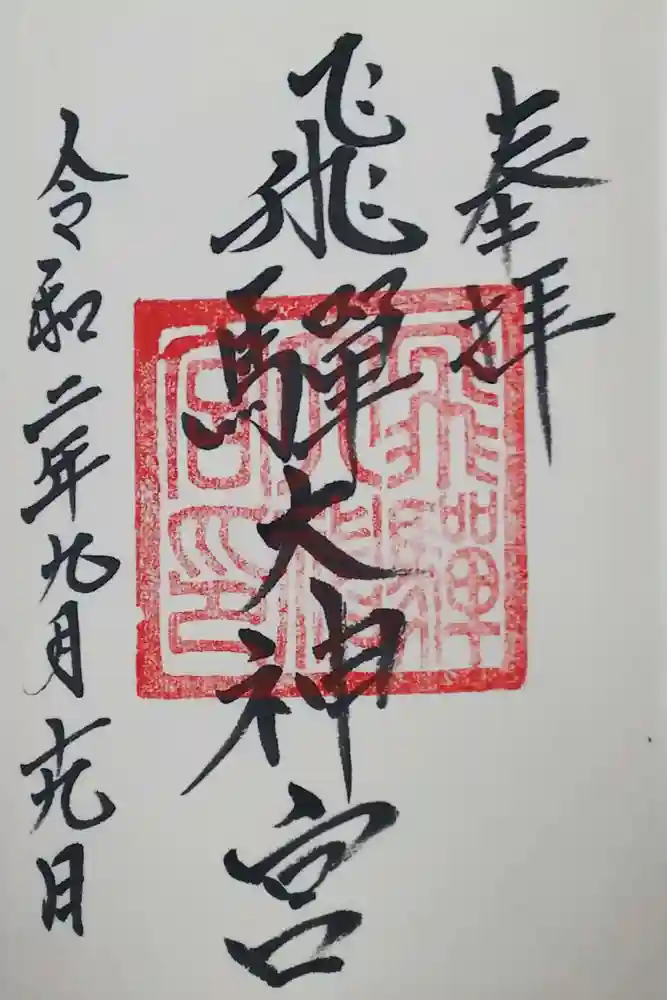 奉拝
飛騨大神宮
令和二年九月十九日
飛騨大神宮印